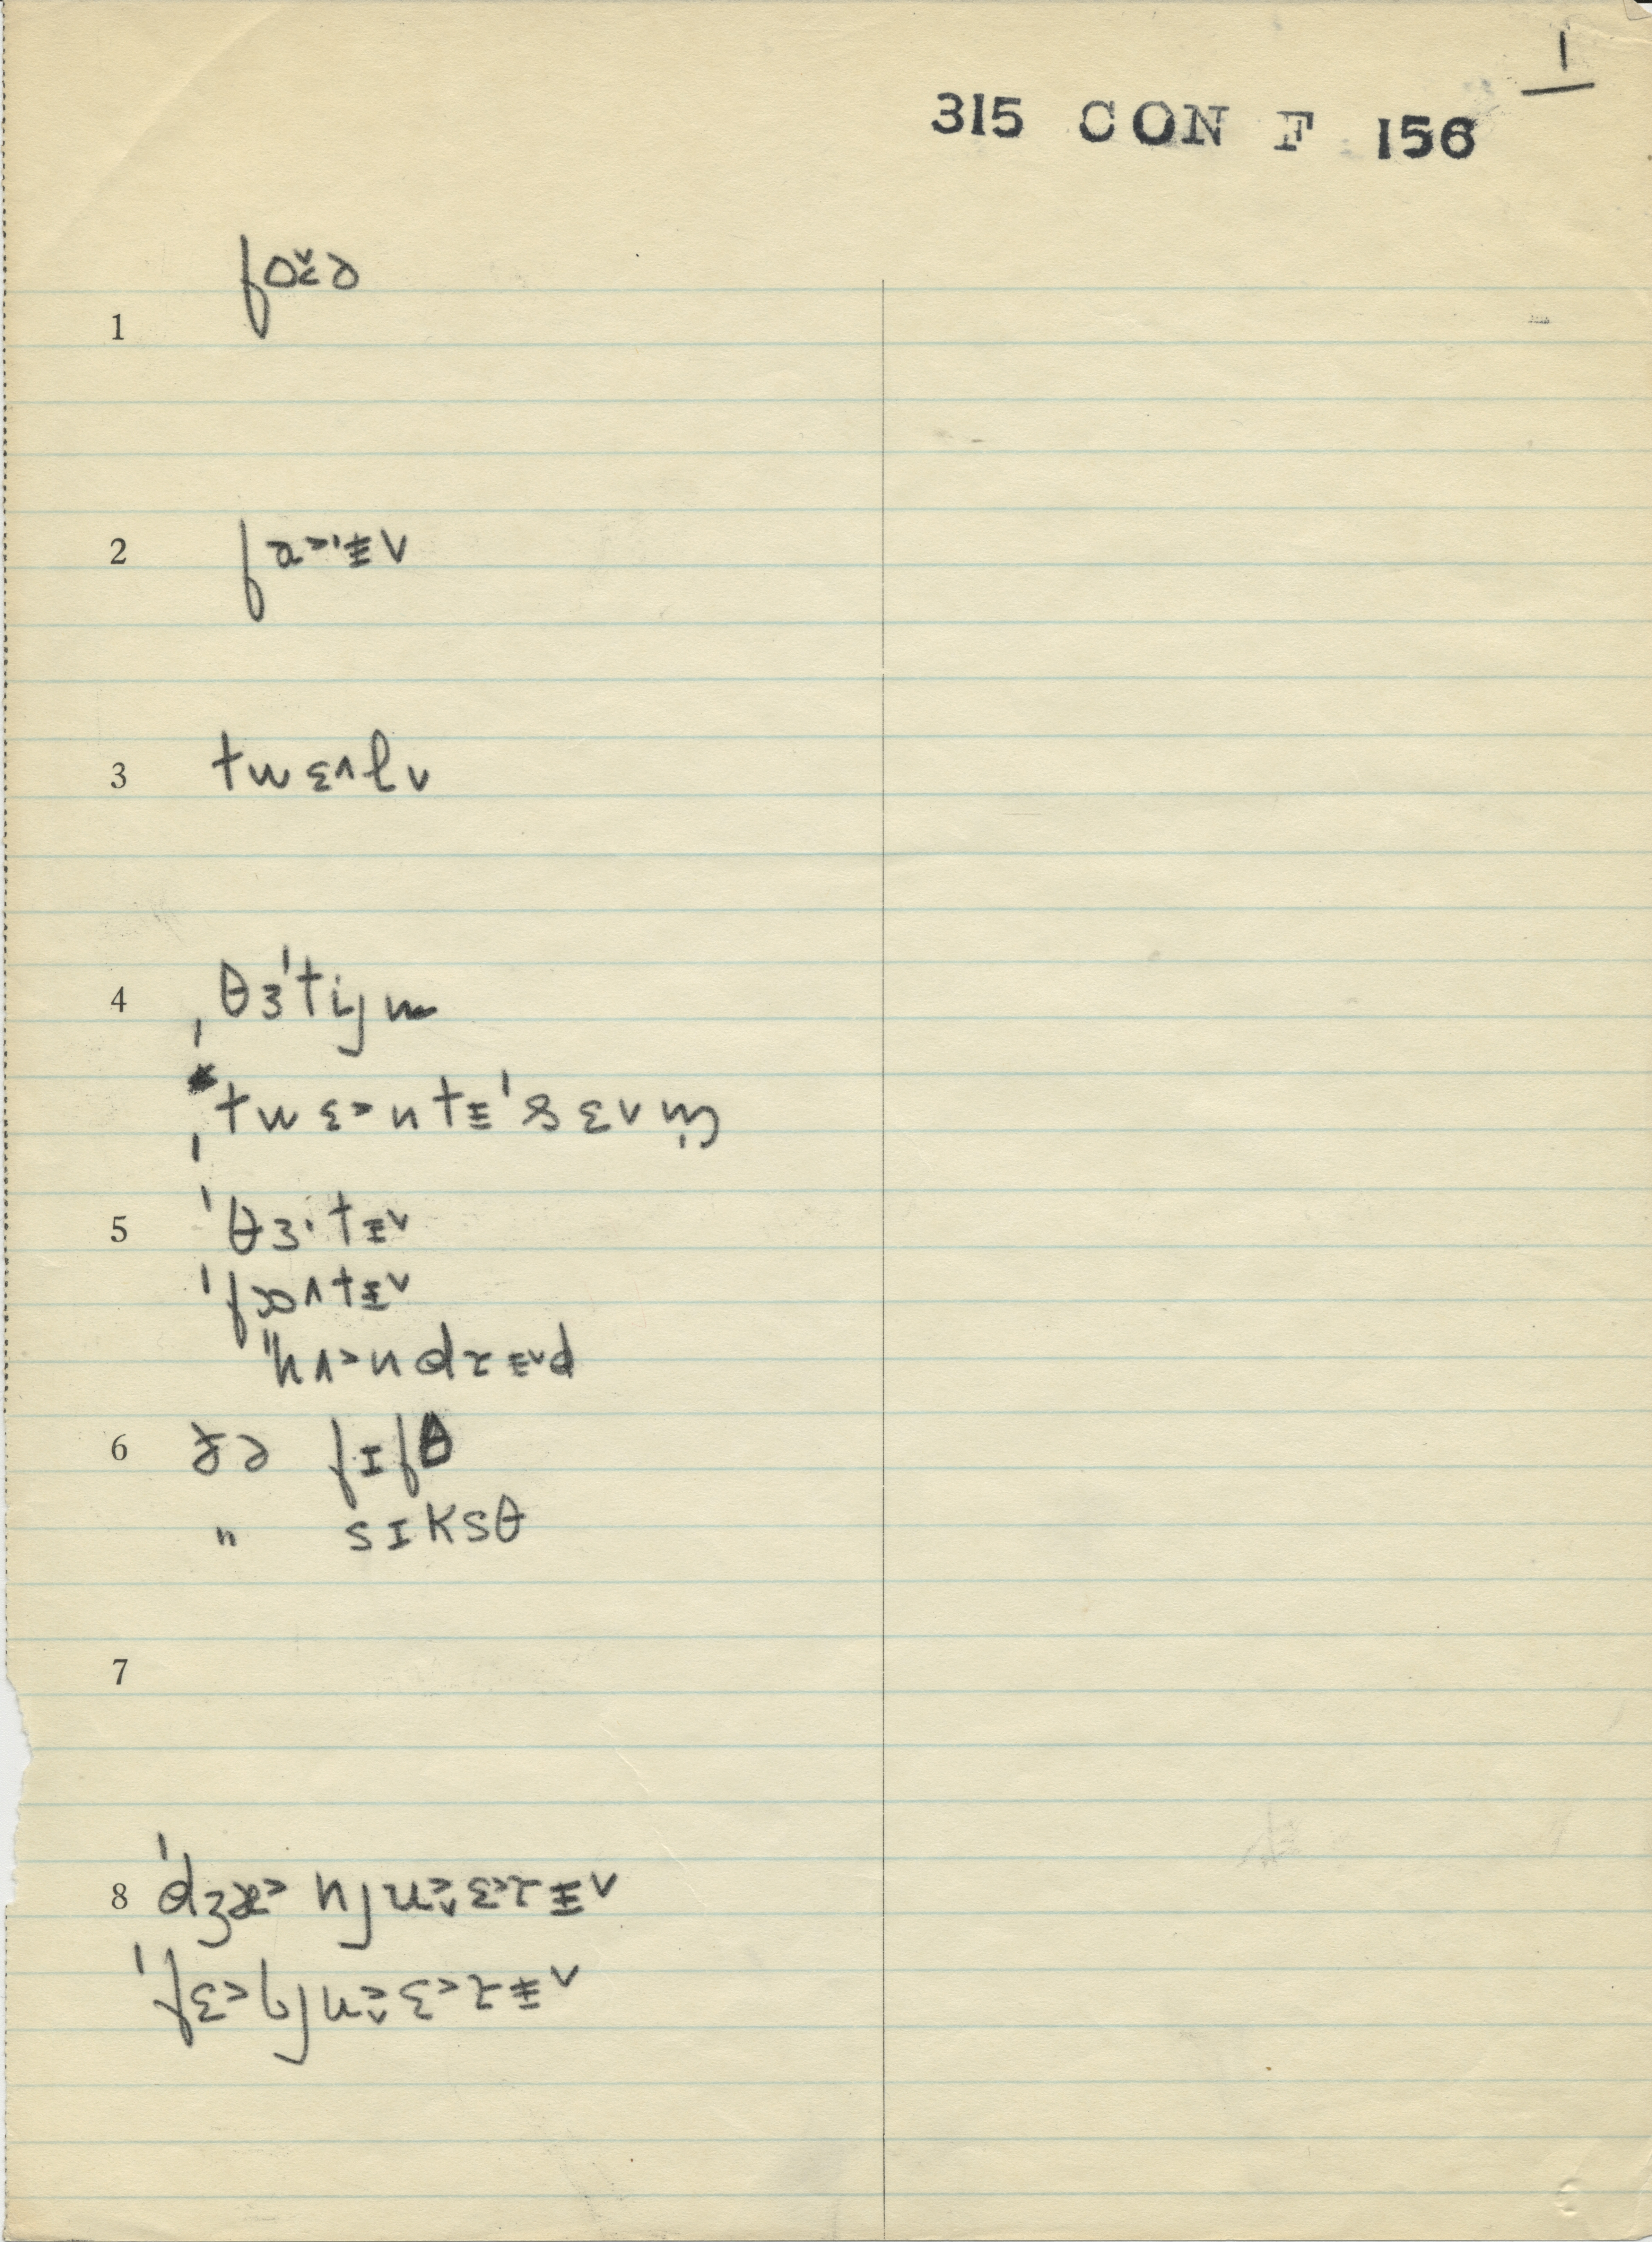 1
315 CON F 156
1 fo˅˂ə
2 fa˃ˑɪ̵v
3 twɛ˄lv
4 ˌθɜˈtijn
ˌtwɛ˃ntɪ̵ˈsɛvm̩
5 ˈθɜˑtɪ̵˅
ˈfɒ˄tɪ̵˅
"hʌ˃ndɾɪ̵˅d
6 ðə fɪfθ
" sɪksθ
7
8 ˈdʒæ˃njʉ˃˅ɛ˃ɾɪ̵˅
ˈfɛ˃bjʉ˃˅ɛ˃ɾɪ̵˅